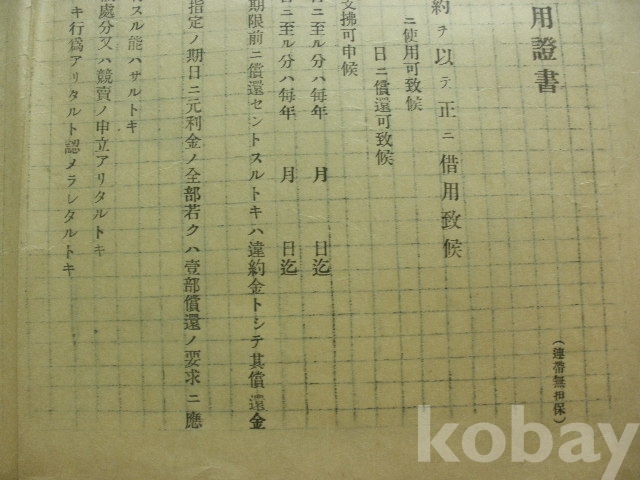 用證書
(連帶無担保)
約ヲ以テ正ニ借用致候
ニ使用可致候
日ニ償還可致候
支拂可申候
日ニ至ル分ハ每年 月 日迄
日ニ至ル分ハ每年 月 日迄
期限前ニ償還セントスルトキハ違約金トシテ其償還金
指定ノ期日ニ元利金ノ全部若クハ壹部償還ノ要求ニ應
スル能ハサルトキ
處分又ハ競賣ノ申立アリタルトキ
キ行爲アリタルト認メラレタルトキ
kobay